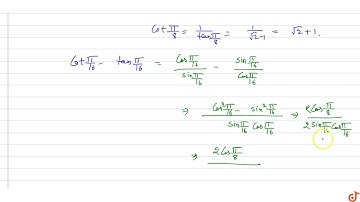 Cot π/8 = 1/tan π/8 = 1/√2-1 = √2+1.
Cot π/16 - tan π/16 = Cos π/16 / sin π/16 - sin π/16 / Cos π/16
⇒ Cos² π/16 - sin² π/16 / sin π/16 Cos π/16 ⇒ 2 Cos π/8 / 2 sin π/16 Cos π/16
⇒ 2 Cos π/8